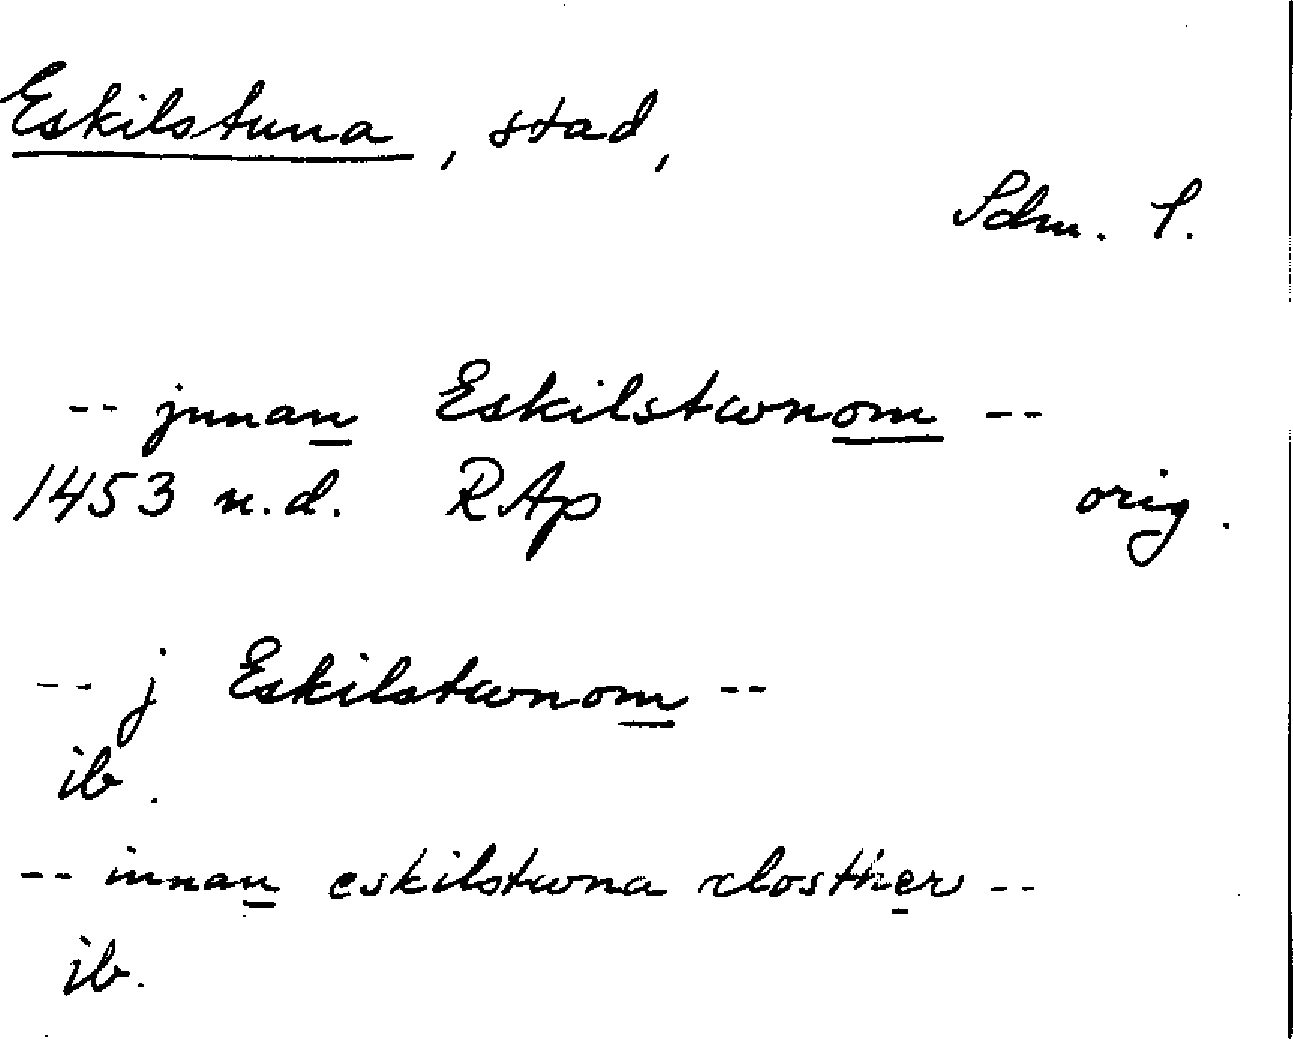 Eskilstuna, stad,
Sdm. l.
-- jnnan Eskilstwnom --
1453 n.d. RAp orig.
-- j Eskilstwnom --
ib.
-- innan eskilstwna closther --
ib.